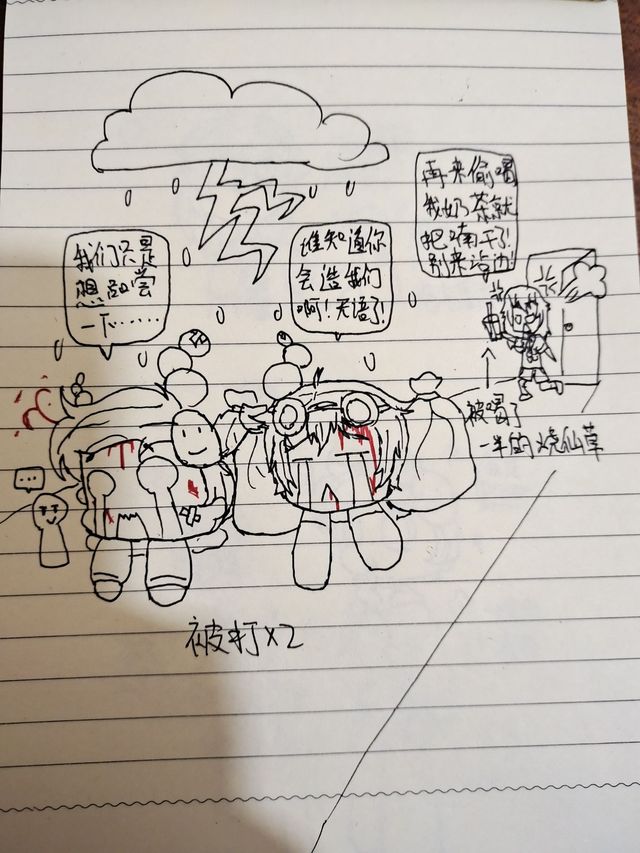 再来偷喝
我奶茶就
把喃干了!
别来沾边!
我们只是
想品尝
一下……
谁知道你
会造我们
啊!无语了!
被喝了
一半的烧仙草
...
被打×2